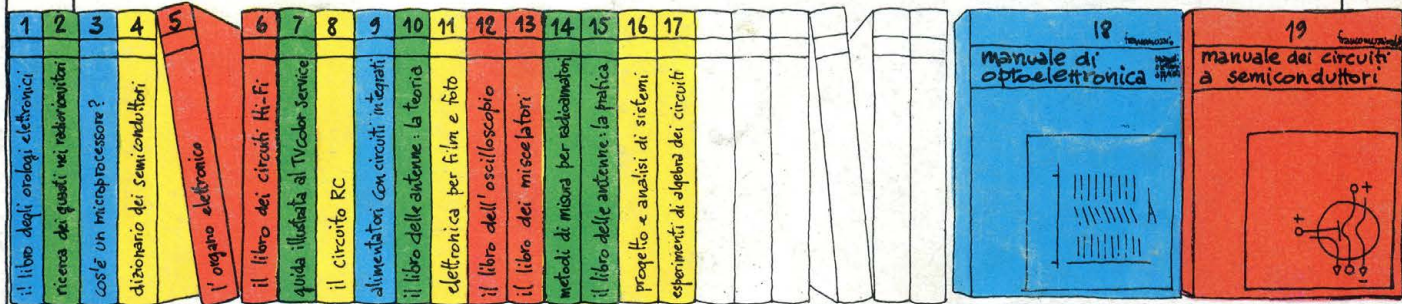 1
il libro degli orologi elettronici
2
ricerca dei guasti nei radioricevitori
3
cos'è un microprocessore?
4
dizionario dei semiconduttori
5
l'organo elettronico
6
il libro dei circuiti Hi-Fi
7
guida illustrata al TVcolor service
8
il circuito RC
9
alimentatori con circuiti integrati
10
il libro delle antenne: la teoria
11
elettronica per film e foto
12
il libro dell'oscilloscopio
13
il libro dei miscelatori
14
metodi di misura per radioamatori
15
il libro delle antenne: la pratica
16
progetto e analisi di sistemi
17
esperimenti di algebra dei circuiti
18
manuale di
optoelettronica
19
manuale dei circuiti
a semiconduttori
+
+
-